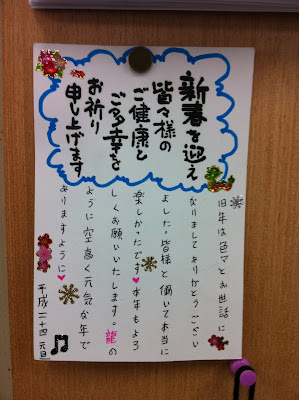 新春を迎え
皆々様の
ご健康と
ご多幸を
お祈り
申し上げます
旧年は色々とお世話に
なりましてありがとうござい
ました。皆様と働いて本当に
楽しかったです♥本年もよろ
しくお願いいたします。龍の
ように空高く元気な年で
ありますように♥
平成二十四元旦